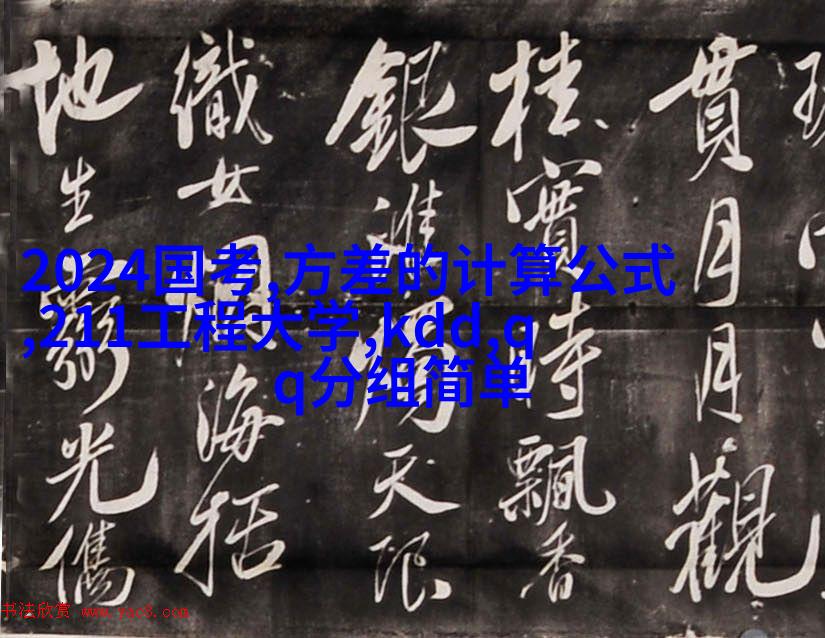 貫月月觀
桂實時飄香
銀 天
織女 海
地生 光
2024国考,方差的计算公式
,211工程大学,kdd,q
q分组简单
书法欣赏 www.yac8.com